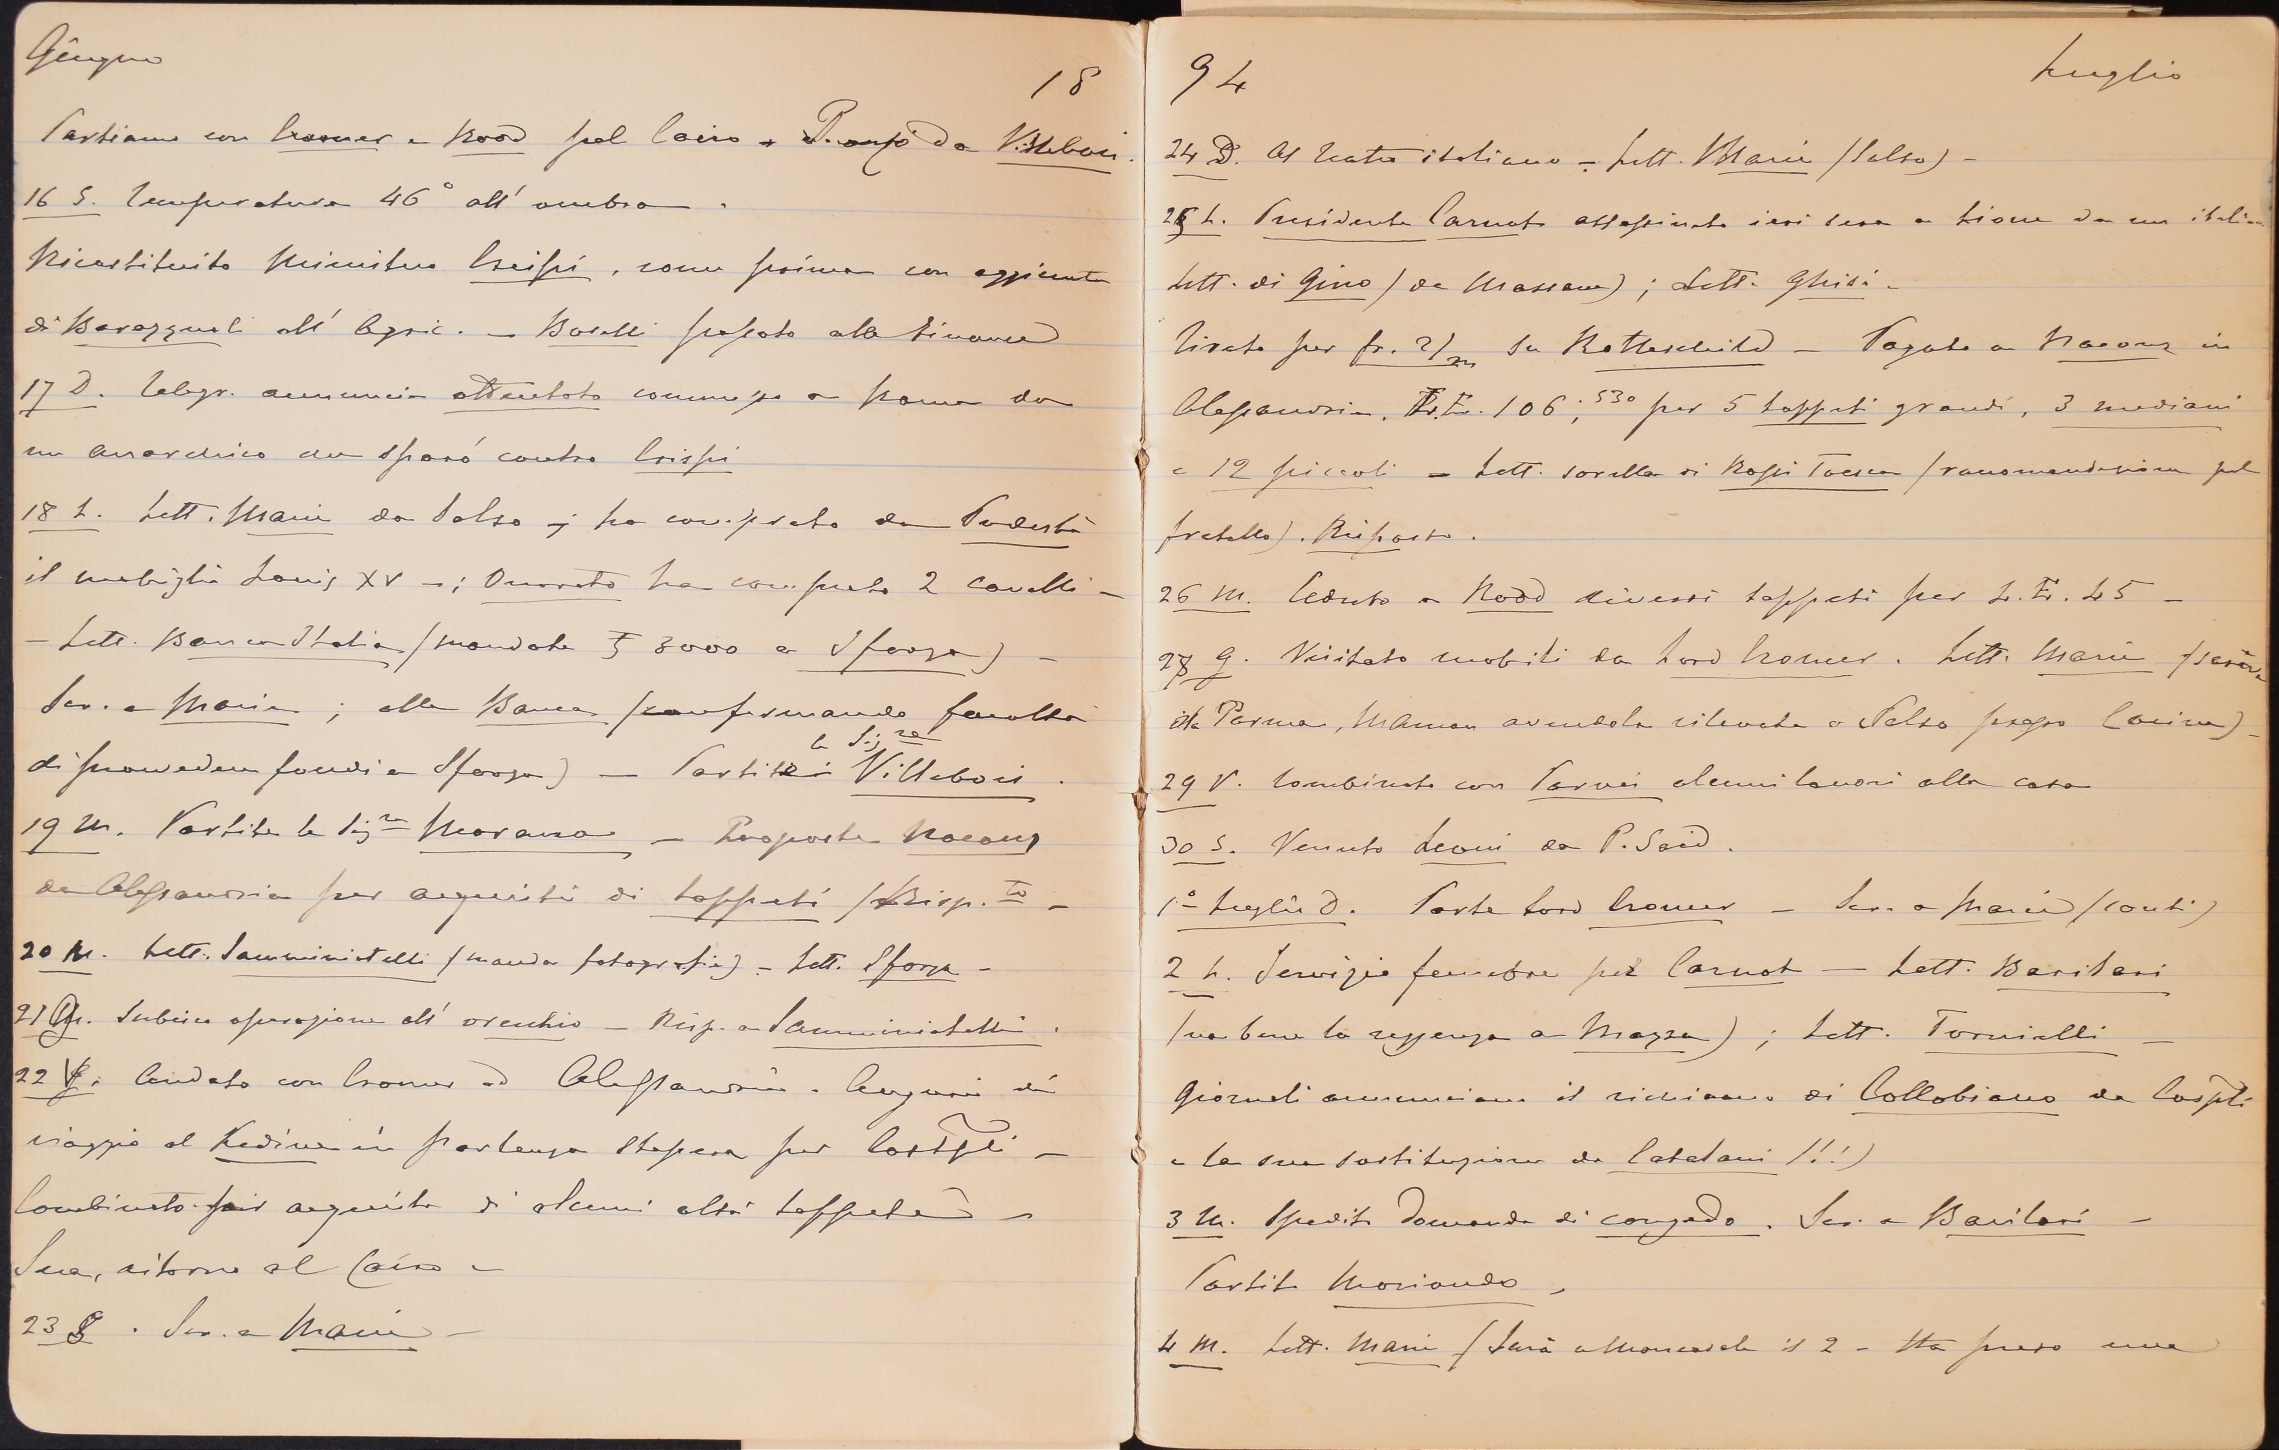 Giugno
18
Partiamo con Cromer e Rood pel Cairo - Pranzo da Villebois.
16 S. Temperatura 46° all'ombra.
Ricostituito Ministero Crispi, come prima con aggiunta
di Barazzuoli all'Agric. - Boselli passato alle Finanze
17 D. Telegr. annuncia attentato commesso a Roma da
un anarchico che sparò contro Crispi
18 L. Lett. Maria da Salso; ha comprato da Podestà
il mobiglio Louis XV -; Onorato ha comprato 2 cavalli -
- Lett. Banca Italia (mandate ₤ 3000 a Sforza) -
Scr. a Maria; alla Banca (confermando facoltà
di provvedere fondi a Sforza) - Partita la Sig.ra Villebois.
19 M. Partita la Sig.ra Morana - Proposte Nacouz
da Alessandria per acquisti di tappeti (Risp.to -
20 M. Lett. Samminiatelli (manda fotografie) - Lett. Sforza -
21 G. Subico operazione all'orecchio - Risp. a Samminiatelli.
22 V. Andato con Cromer ad Alessandria. Auguri di
viaggio al Kedive in partenza stasera per Costpli -
Combinato per acquisto di alcuni altri tappeti -
Sera, ritorno al Cairo -
23 S. Scr. a Maria -
94
Luglio
24 D. Al teatro italiano - Lett. Maria (Salso) -
25 L. Presidente Carnot assassinato ieri sera a Lione da un italiano
Lett. di Gino (da Massaua); Lett. Ghisi -
Tirato per fr. 2/m su Rothschild - Pagato a Nacouz in
Alessandria, L.E. 106;530 per 5 tappeti grandi, 3 mediani
e 12 piccoli - Lett. sorella di Rossi Toesca (raccomandazione pel
fratello). Risposto.
26 M. Ceduto a Rood diversi tappeti per L.E. 45 -
28 G. Visitato mobili da Lord Cromer. Lett. Maria
da Parma, Maman avendola rilevata a Salso presso Corinna) -
29 V. Combinato con Parvis alcuni lavori alla casa
30 S. Venuto Leoni da P. Said.
1° Luglio D. Parte Lord Cromer - Scr. a Maria (conti)
2 L. Servizio funebre per Carnot - Lett. Barilari
(va bene la reggenza a Mazza); Lett. Tornielli -
Giornali annunciano il richiamo di Collobiano da Costpli
e la sua sostituzione da Catalani (!!)
3 M. Spedito domanda di congedo. Scr. a Barilari -
Partito Moriondo,
4 M. Lett. Maria (Sarà a Moncasale il 2 - Ha preso una